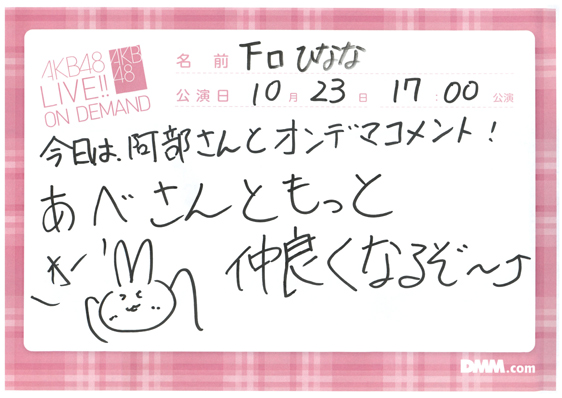 AKB48
LIVE!!
ON DEMAND
AKB
48
名前 下口ひなな
公演日 10月23日 17:00公演
今日は、阿部さんとオンデマコメント!
あべさんともっと
仲良くなるぞ〜♪
DMM.com